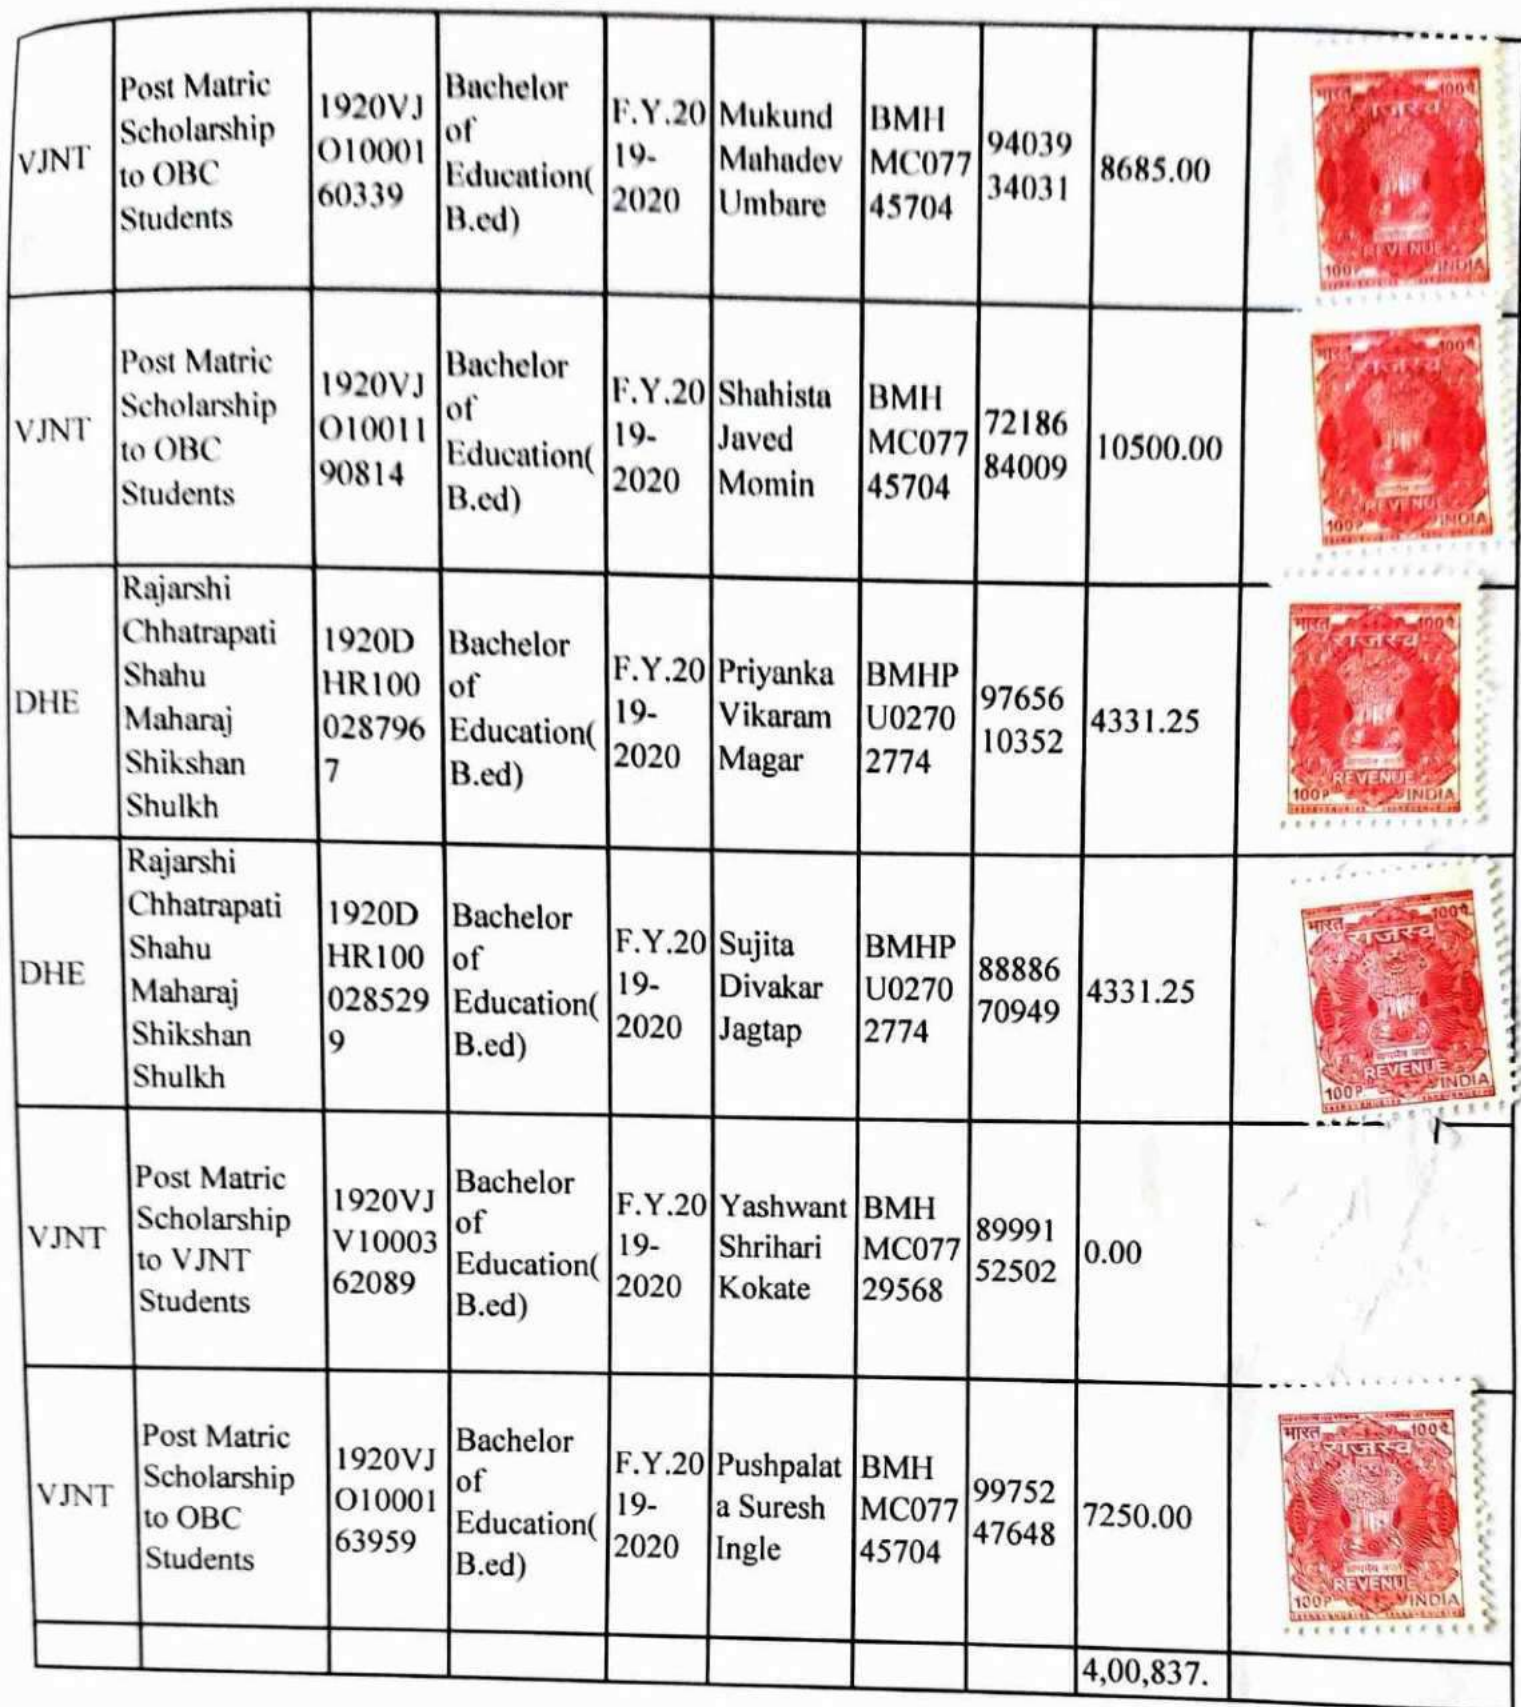 VJNT
Post Matric
Scholarship
to OBC
Students
1920VJ
O10001
60339
Bachelor
of
Education(
B.ed)
F.Y.20
19-
2020
Mukund
Mahadev
Umbare
BMH
MC077
45704
94039
34031
8685.00
भारत 100पै.
राजस्व
REVENUE
100P INDIA
VJNT
Post Matric
Scholarship
to OBC
Students
1920VJ
O10011
90814
Bachelor
of
Education(
B.ed)
F.Y.20
19-
2020
Shahista
Javed
Momin
BMH
MC077
45704
72186
84009
10500.00
भारत 100पै.
राजस्व
REVENUE
100P INDIA
DHE
Rajarshi
Chhatrapati
Shahu
Maharaj
Shikshan
Shulkh
1920D
HR100
028796
7
Bachelor
of
Education(
B.ed)
F.Y.20
19-
2020
Priyanka
Vikaram
Magar
BMHP
U0270
2774
97656
10352
4331.25
भारत 100पै.
राजस्व
REVENUE
100P INDIA
DHE
Rajarshi
Chhatrapati
Shahu
Maharaj
Shikshan
Shulkh
1920D
HR100
028529
9
Bachelor
of
Education(
B.ed)
F.Y.20
19-
2020
Sujita
Divakar
Jagtap
BMHP
U0270
2774
88886
70949
4331.25
भारत 100पै.
राजस्व
सत्यमेव जयते
REVENUE
100P INDIA
VJNT
Post Matric
Scholarship
to VJNT
Students
1920VJ
V10003
62089
Bachelor
of
Education(
B.ed)
F.Y.20
19-
2020
Yashwant
Shrihari
Kokate
BMH
MC077
29568
89991
52502
0.00
VJNT
Post Matric
Scholarship
to OBC
Students
1920VJ
O10001
63959
Bachelor
of
Education(
B.ed)
F.Y.20
19-
2020
Pushpalat
a Suresh
Ingle
BMH
MC077
45704
99752
47648
7250.00
भारत 100पै.
राजस्व
सत्यमेव जयते
REVENUE
100P INDIA
4,00,837.